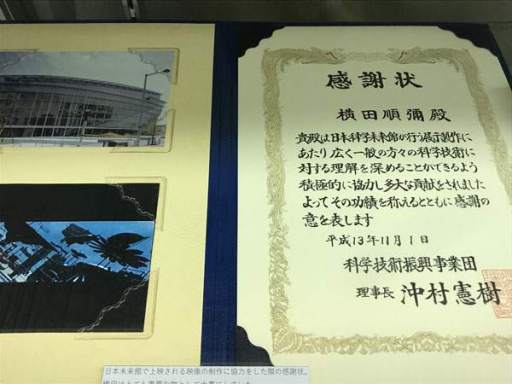 感謝状
横田順彌殿
貴殿は日本科学未来館が行う展示制作に
あたり広く一般の方々の科学技術に
対する理解を深めることができるよう
積極的に協力し多大な貢献をされました
よってその功績を称えるとともに感謝の
意を表します
平成13年11月1日
科学技術振興事業団
理事長 沖村憲樹
日本未来館で上映される映像の制作に協力をした際の感謝状。